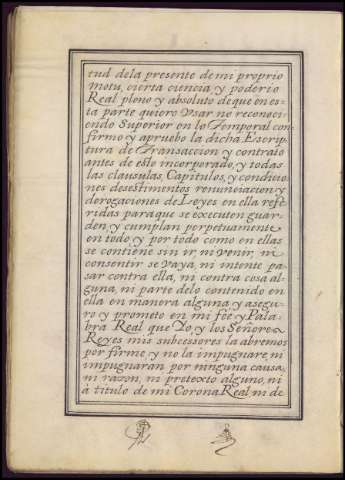 tud dela presente de mi proprio
motu, cierta ciencia, y poderio
Real pleno y absoluto de que en es-
ta parte quiero Vsar no reconoci-
endo Superior en lo Temporal con-
firmo y apruebo la dicha Escrip-
tura de Transaccion y contrato
antes de esto incorporado, y todas
las clausulas, Capitulos, y condicio-
nes desestimentos renunciacion y
derogaciones de Leyes en ella refe-
ridas para que se executen guar-
den, y cumplan perpetuamente
en todo y por todo como en ellas
se contiene sin ir ni venir, ni
consentir se vaya, ni intente pa-
sar contra ella, ni contra cosa al-
guna, ni parte delo contenido en
ella en manera alguna y asegu-
ro y prometo en mi feé y Pala-
bra Real que Yo, y los Señores
Reyes mis subcessores la abremos
por firme y no la impugnare, ni
impugnaran por ninguna causa,
ni razon, ni pretexto alguno, ni
à titulo de mi Corona Real ni de